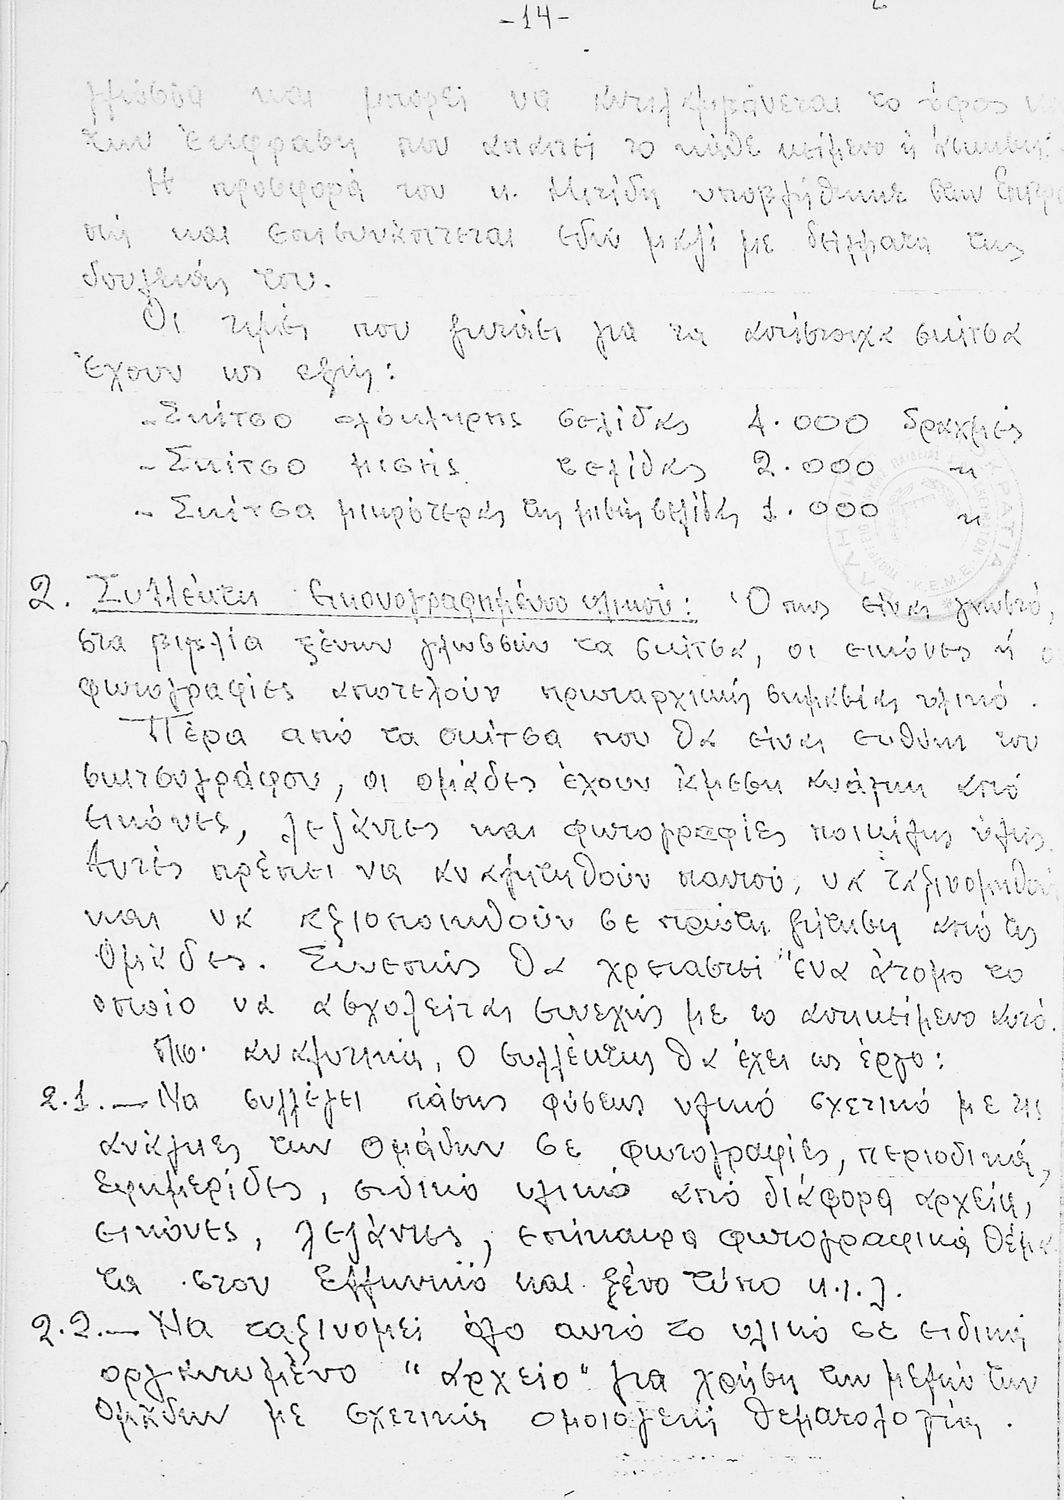 -14-
γλώσσα και μπορεί να αντιλαμβάνεται το ύφος
την έκφραση που απαιτεί το κάθε κείμενο ή άσκηση.
Η προσφορά του κ. Μιτίδη υποβλήθηκε στην Επιτρο
πή και επισυνάπτεται εδώ μαζί με δείγματα της
δουλειάς του.
Οι τιμές που ζητάει για τα αντίστοιχα σκίτσα
έχουν ως εξής:
-Σκίτσο ολόκληρης σελίδας 4.000 δραχμές
-Σκίτσο μισής σελίδας 2.000 "
-Σκίτσα μικρότερα της μισής σελίδας 1.000 "
2. Συλλέκτη εικονογραφημένου υλικού: Όπως είναι γνωστό,
στα βιβλία ξένων γλωσσών τα σκίτσα, οι εικόνες ή ο
φωτογραφίες αποτελούν πρωταρχικής σημασίας υλικό.
Πέρα από τα σκίτσα που θα είναι ευθύνη του
σκιτσογράφου, οι ομάδες έχουν άμεση ανάγκη από
εικόνες, λεζάντες και φωτογραφίες ποικίλης ύλης.
Αυτές πρέπει να αναζητηθούν παντού, να ταξινομηθού
και να αξιοποιηθούν σε πρώτη ζήτηση από τις
Ομάδες. Συνεπώς θα χρειαστεί ένα άτομο το
οποίο να ασχολείται συνεχώς με το αντικείμενο αυτό.
Πιο αναλυτικά, ο συλλέκτης θα έχει ως έργο:
2.1.- Να συλλέγει πάσης φύσεως υλικό σχετικό με τις
ανάγκες των Ομάδων σε φωτογραφίες, περιοδικά,
εφημερίδες, ειδικό υλικό από διάφορα αρχεία,
εικόνες, λεζάντες, επίκαιρα φωτογραφικά θέμα
τα στον Ελληνικό και ξένο τύπο κ.λ.
2.2.- Να ταξινομεί όλο αυτό το υλικό σε ειδικά
οργανωμένο "αρχείο" για χρήση των μελών των
Ομάδων με σχετικά ομοιογενή θεματολογία.
Κ.Ε.Μ.Ε.